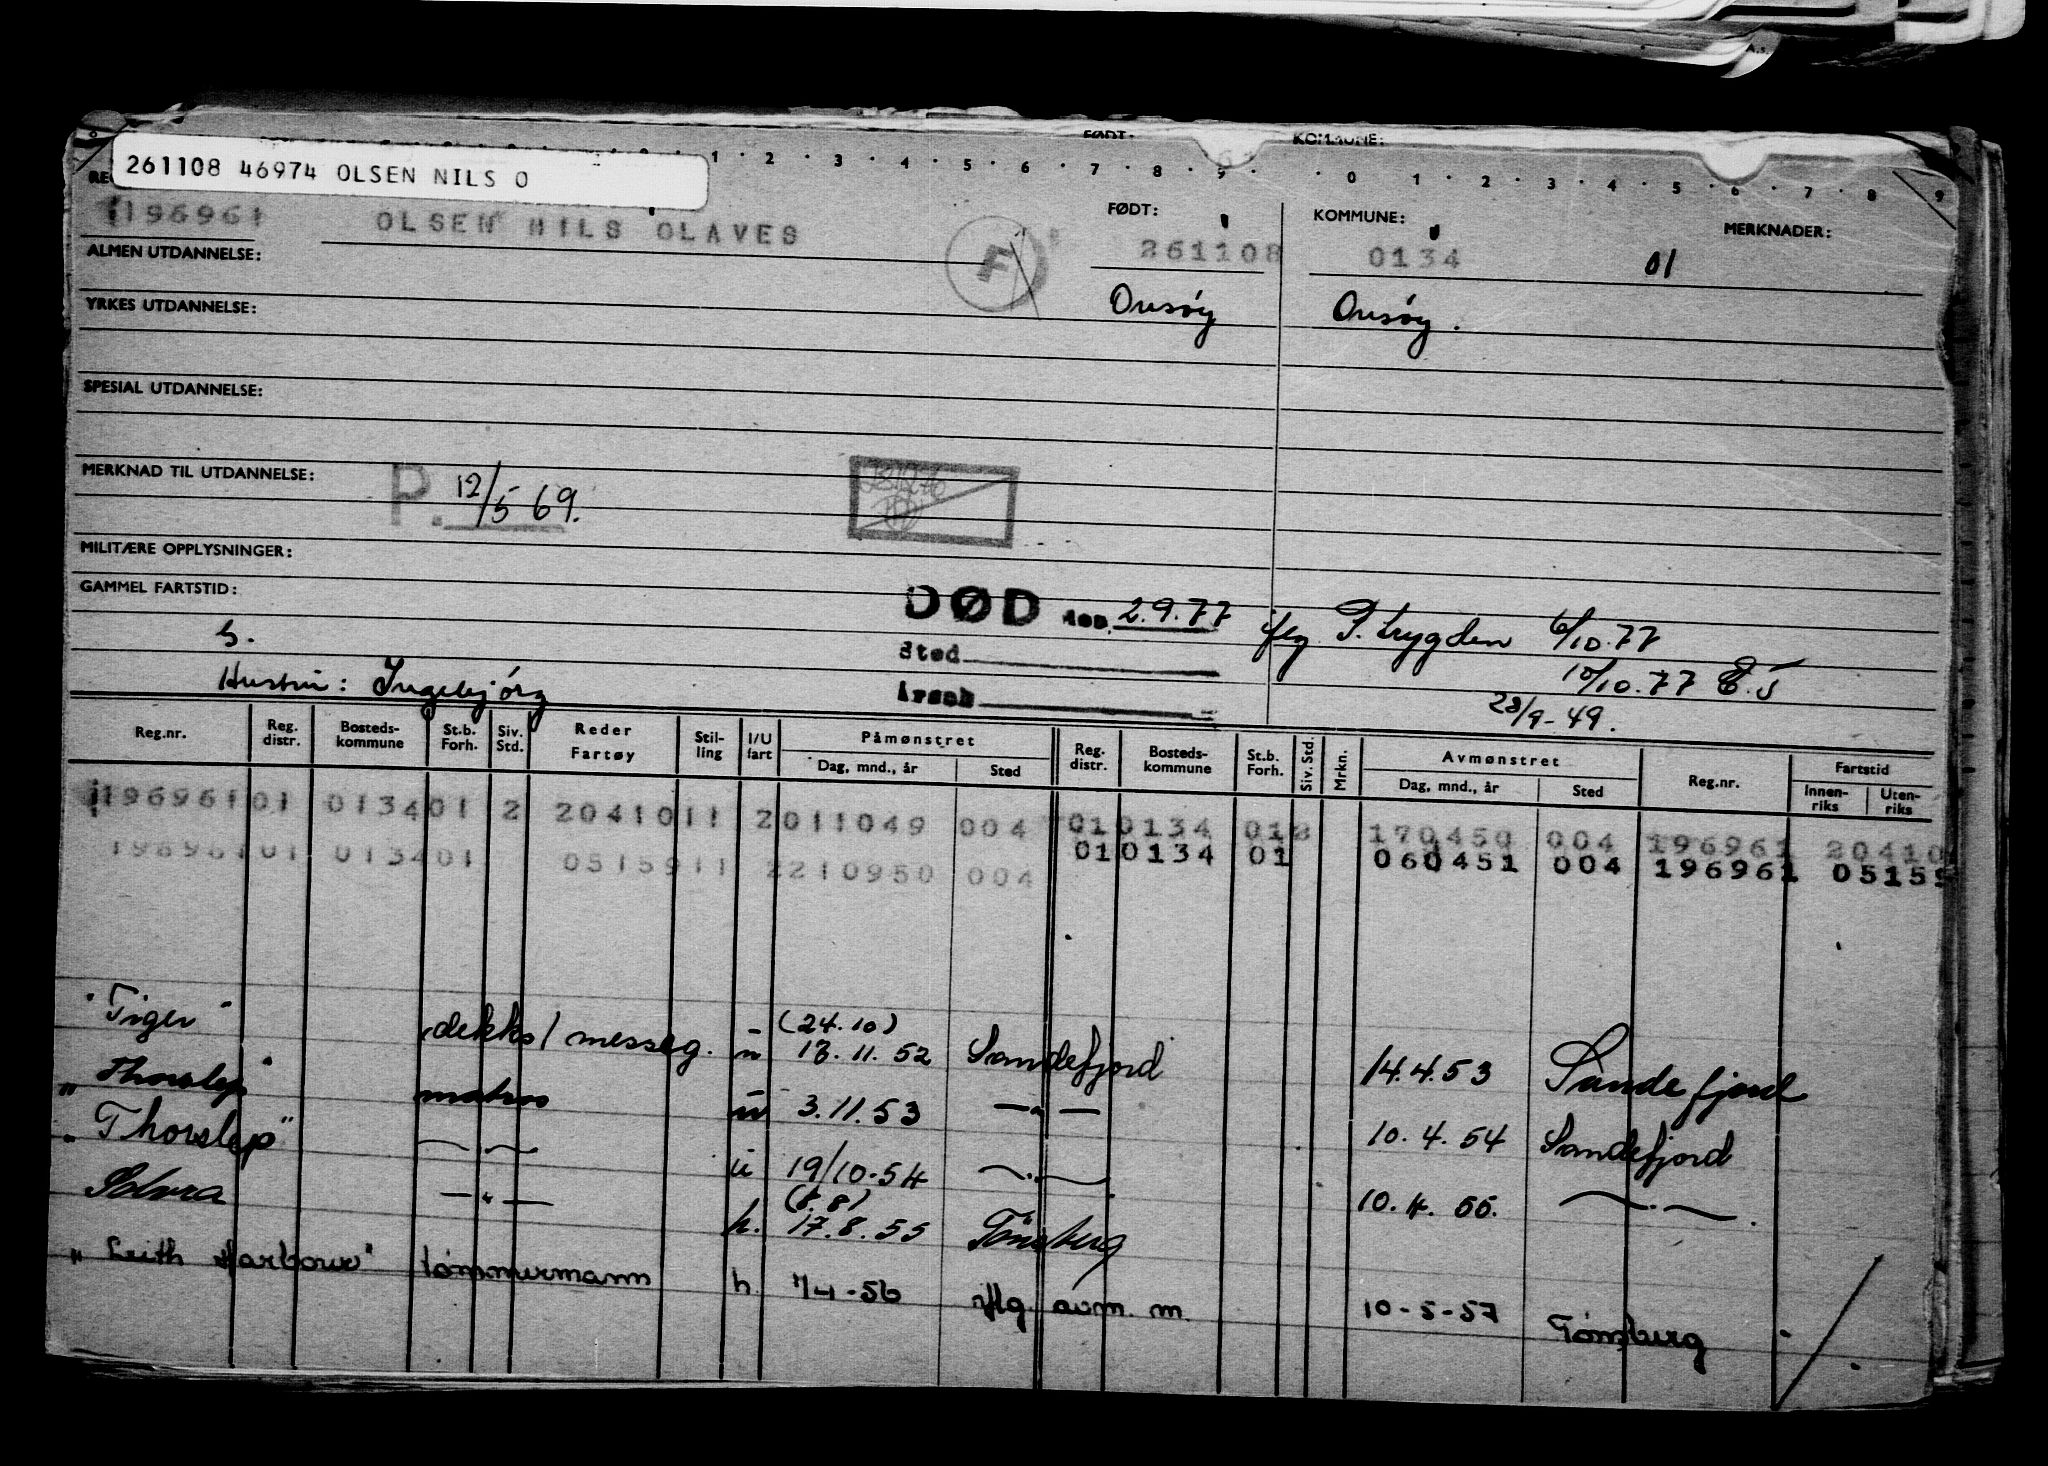 A.s.
FØDT: KOMMUNE:
261108 46974 OLSEN NILS O
1 · 2 · 3 · 4 · 5 · 6 · 7 · 8 · 9 · · 0 · 1 · 2 · 3 · 4 · 5 · 6 · 7 · 8 · 9
FØDT: KOMMUNE: MERKNADER:
196961 OLSEN NILS OLAVES F 261108 0134 01
ALMEN UTDANNELSE:
Onsøy Onsøy.
YRKES UTDANNELSE:
SPESIAL UTDANNELSE:
MERKNAD TIL UTDANNELSE: P. 12/5 69.
MILITÆRE OPPLYSNINGER:
GAMMEL FARTSTID:
DØD den 2.9.77 iflg P. trygden 6/10.77
Sted
10/10.77 E.J
Hustru: Ingebjørg
Årsak
28/9-49.
Reg.nr. Reg. distr. Bosteds-kommune St.b. Forh. Siv. Std. Reder Fartøy Stil-ling I/U fart Påmønstret Reg. distr. Bosteds-kommune St.b. Forh. Siv. Std. Mrkn. Avmønstret Reg.nr. Fartstid
Dag, mnd., år Sted Dag, mnd., år Sted Innen-riks Uten-riks
196961 01 0134 01 2 20410 11 2 011049 004 01 0134 01 2 170450 004 196961 20410
196961 01 0134 01 05159 11 2 210950 004 01 0134 01 060451 004 196961 05159
"Tiger" dekks/messeg. u (24.10) 13.11.52 Sandefjord 14.4.53 Sandefjord
"Thorslep" matros u 3.11.53 — " — 10.4.54 Sandefjord
"Thorslep" — " — u 19/10-54 — " — 10.4.55. — " —.
Solvra — " — h. (8.8) 17.8.55 Tønsberg
"Leith Harbour" tømmermann h. 7/4-56 iflg. avm. m. 10-5-57 Tønsberg